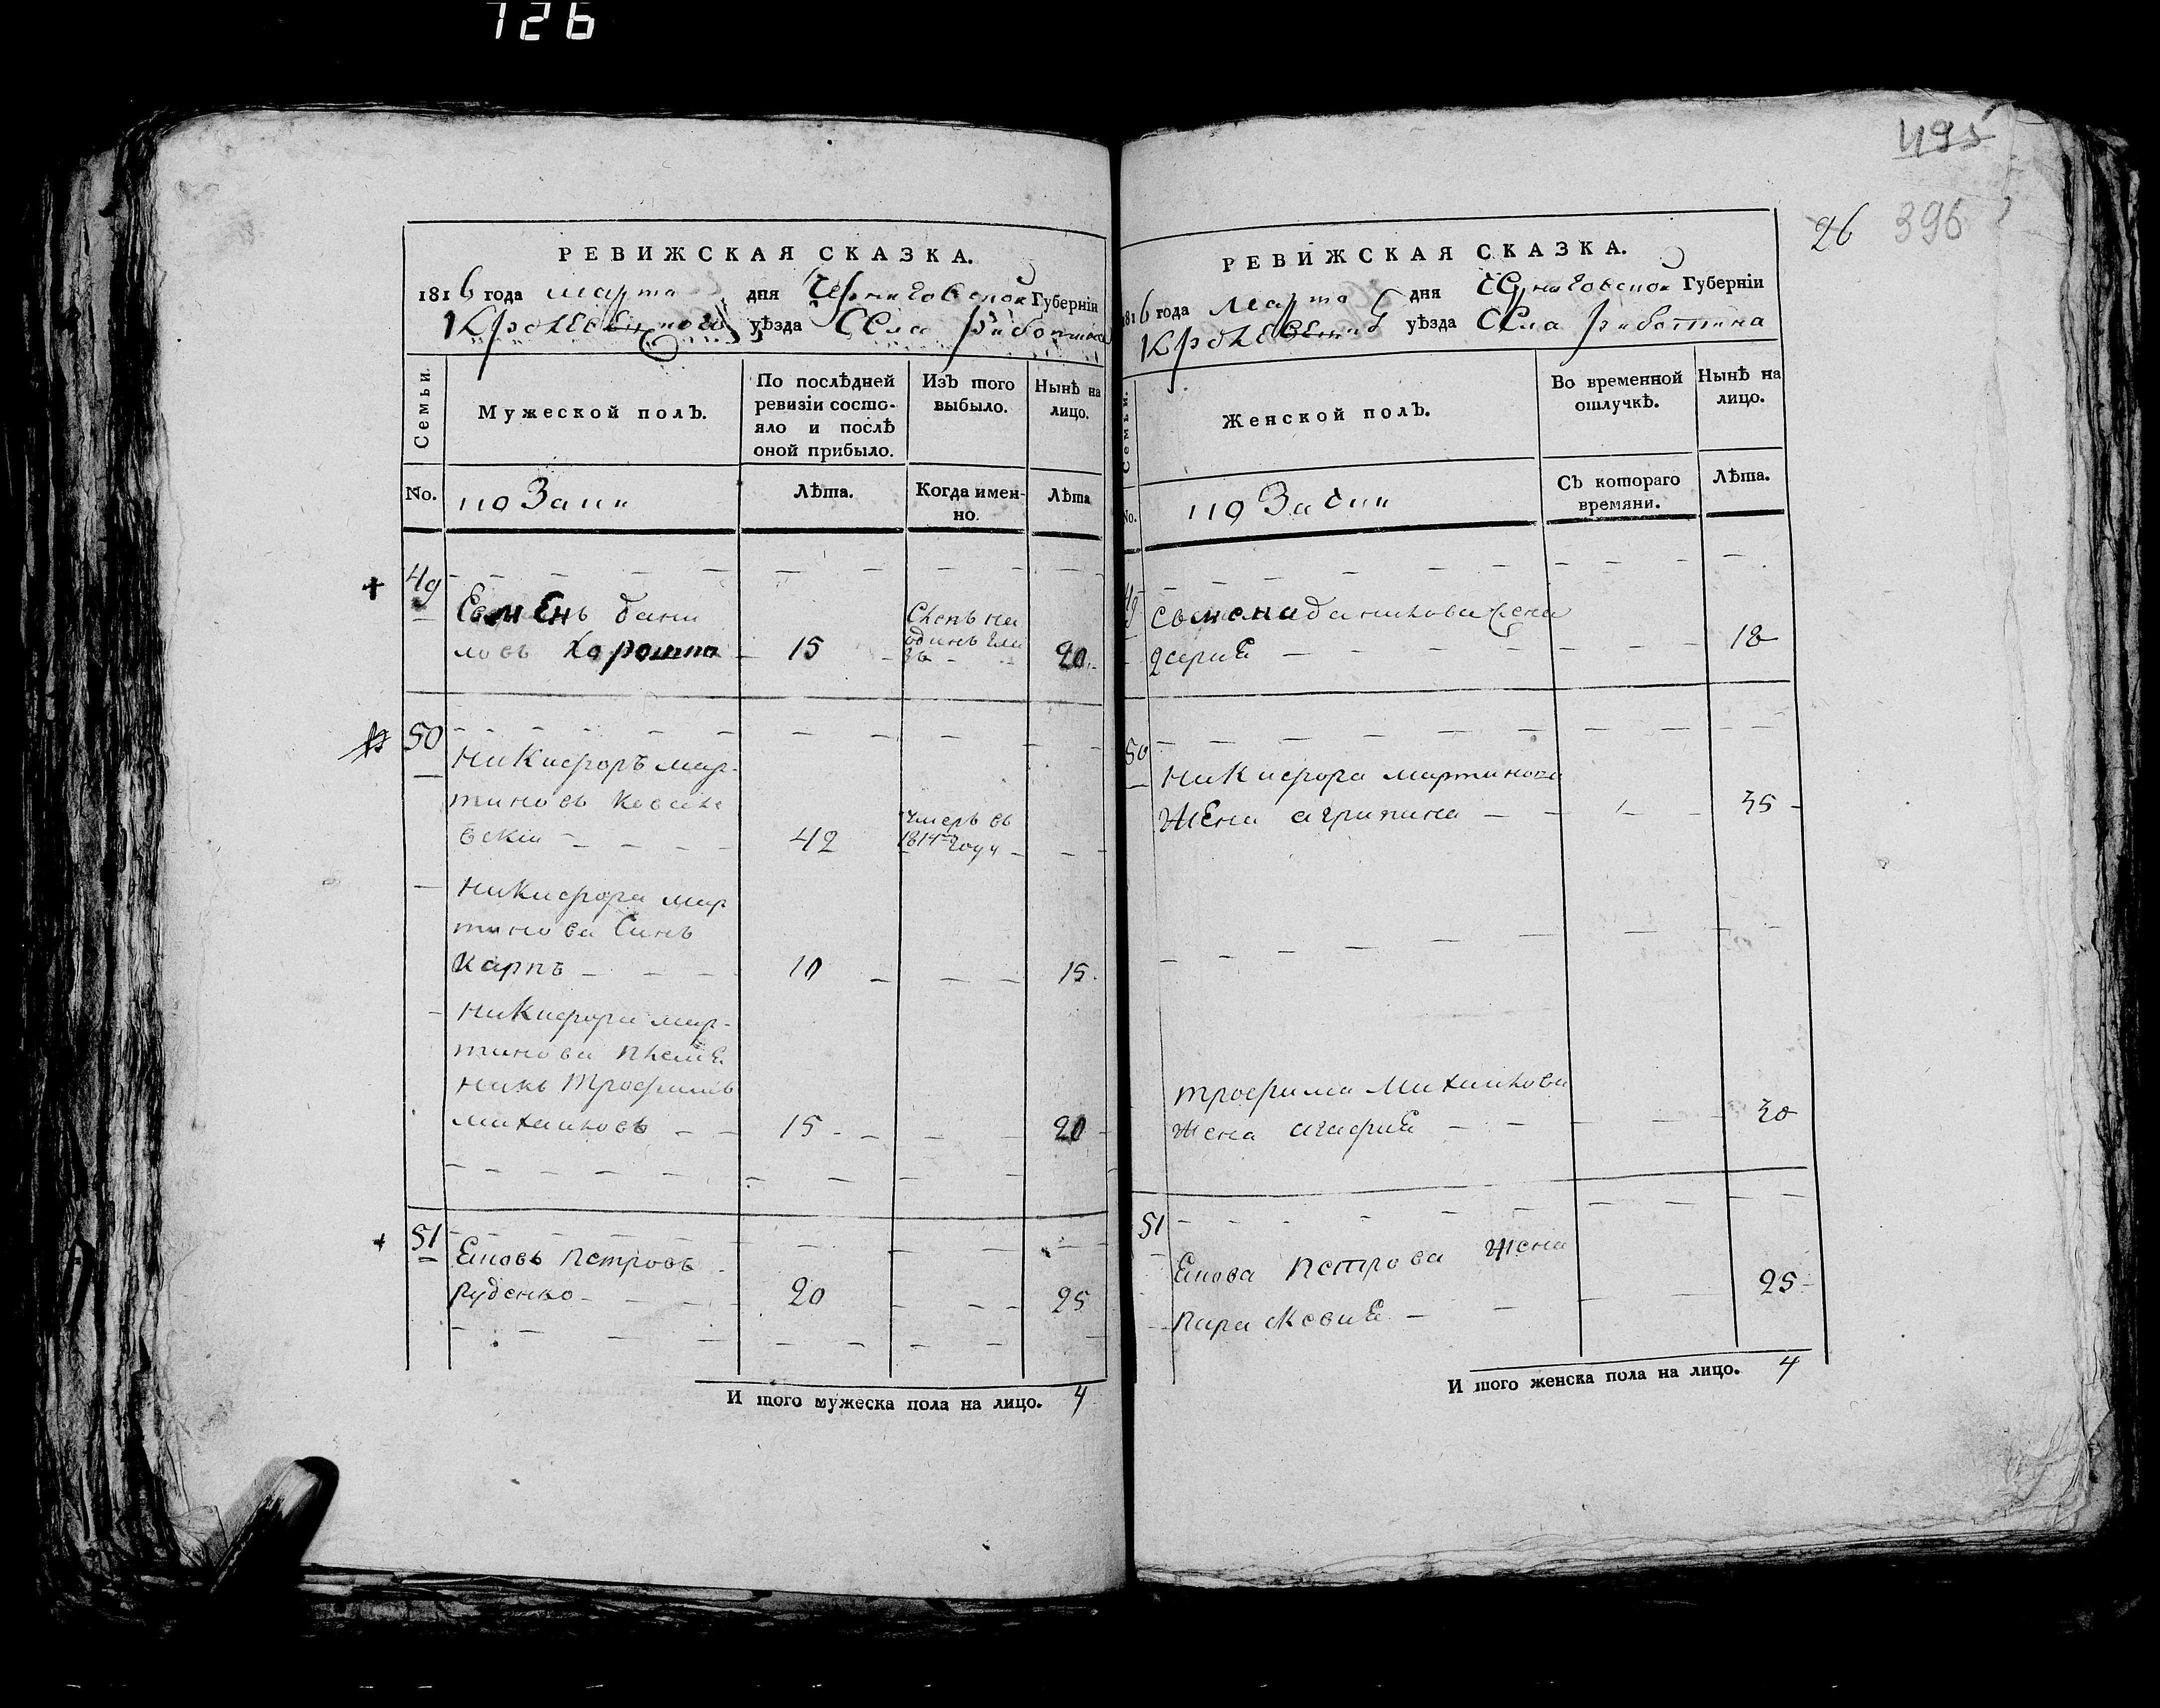 726
РЕВИЖСКАЯ СКАЗКА.
1816 года марта дня Черниговской Губерніи
Кролевецкого уѣзда Села риботина
Семьи.
Мужеской полъ.
По послѣдней ревизіи состо-
яло и послѣ
оной прибыло.
Изъ того
выбыло.
Нынѣ на
лицо.
No.
Лѣта.
Когда имен-
но.
Лѣта
49
Семенъ дани
ловъ Хорошко 15 20
Слепъ на
одинъ гла
зъ
50
Никифоръ мар-
тиновъ
42
умеръ въ
1814 году
Никифора мар
тинова Синъ
Карпъ 10 15
Никифора мар-
тинова племе
никъ Трофимъ
михаиловъ 15 20
51
петровъ
руденко 20 25
И того мужеска пола на лицо. 4
495
26 396
РЕВИЖСКАЯ СКАЗКА.
1816 года марта дня Черниговской Губерніи
уѣзда Села риботина
Семьи.
Женской полъ.
Во временной
отлучкѣ.
Нынѣ на
лицо.
No.
Съ котораго
времяни.
Лѣта.
49
Семена данилова жена
18
50
Никифора мартинова
Жена агрипина 35
трофима Михаилова
жена агафия 30
51
петрова жена
25
параскевия
И того женска пола на лицо. 4